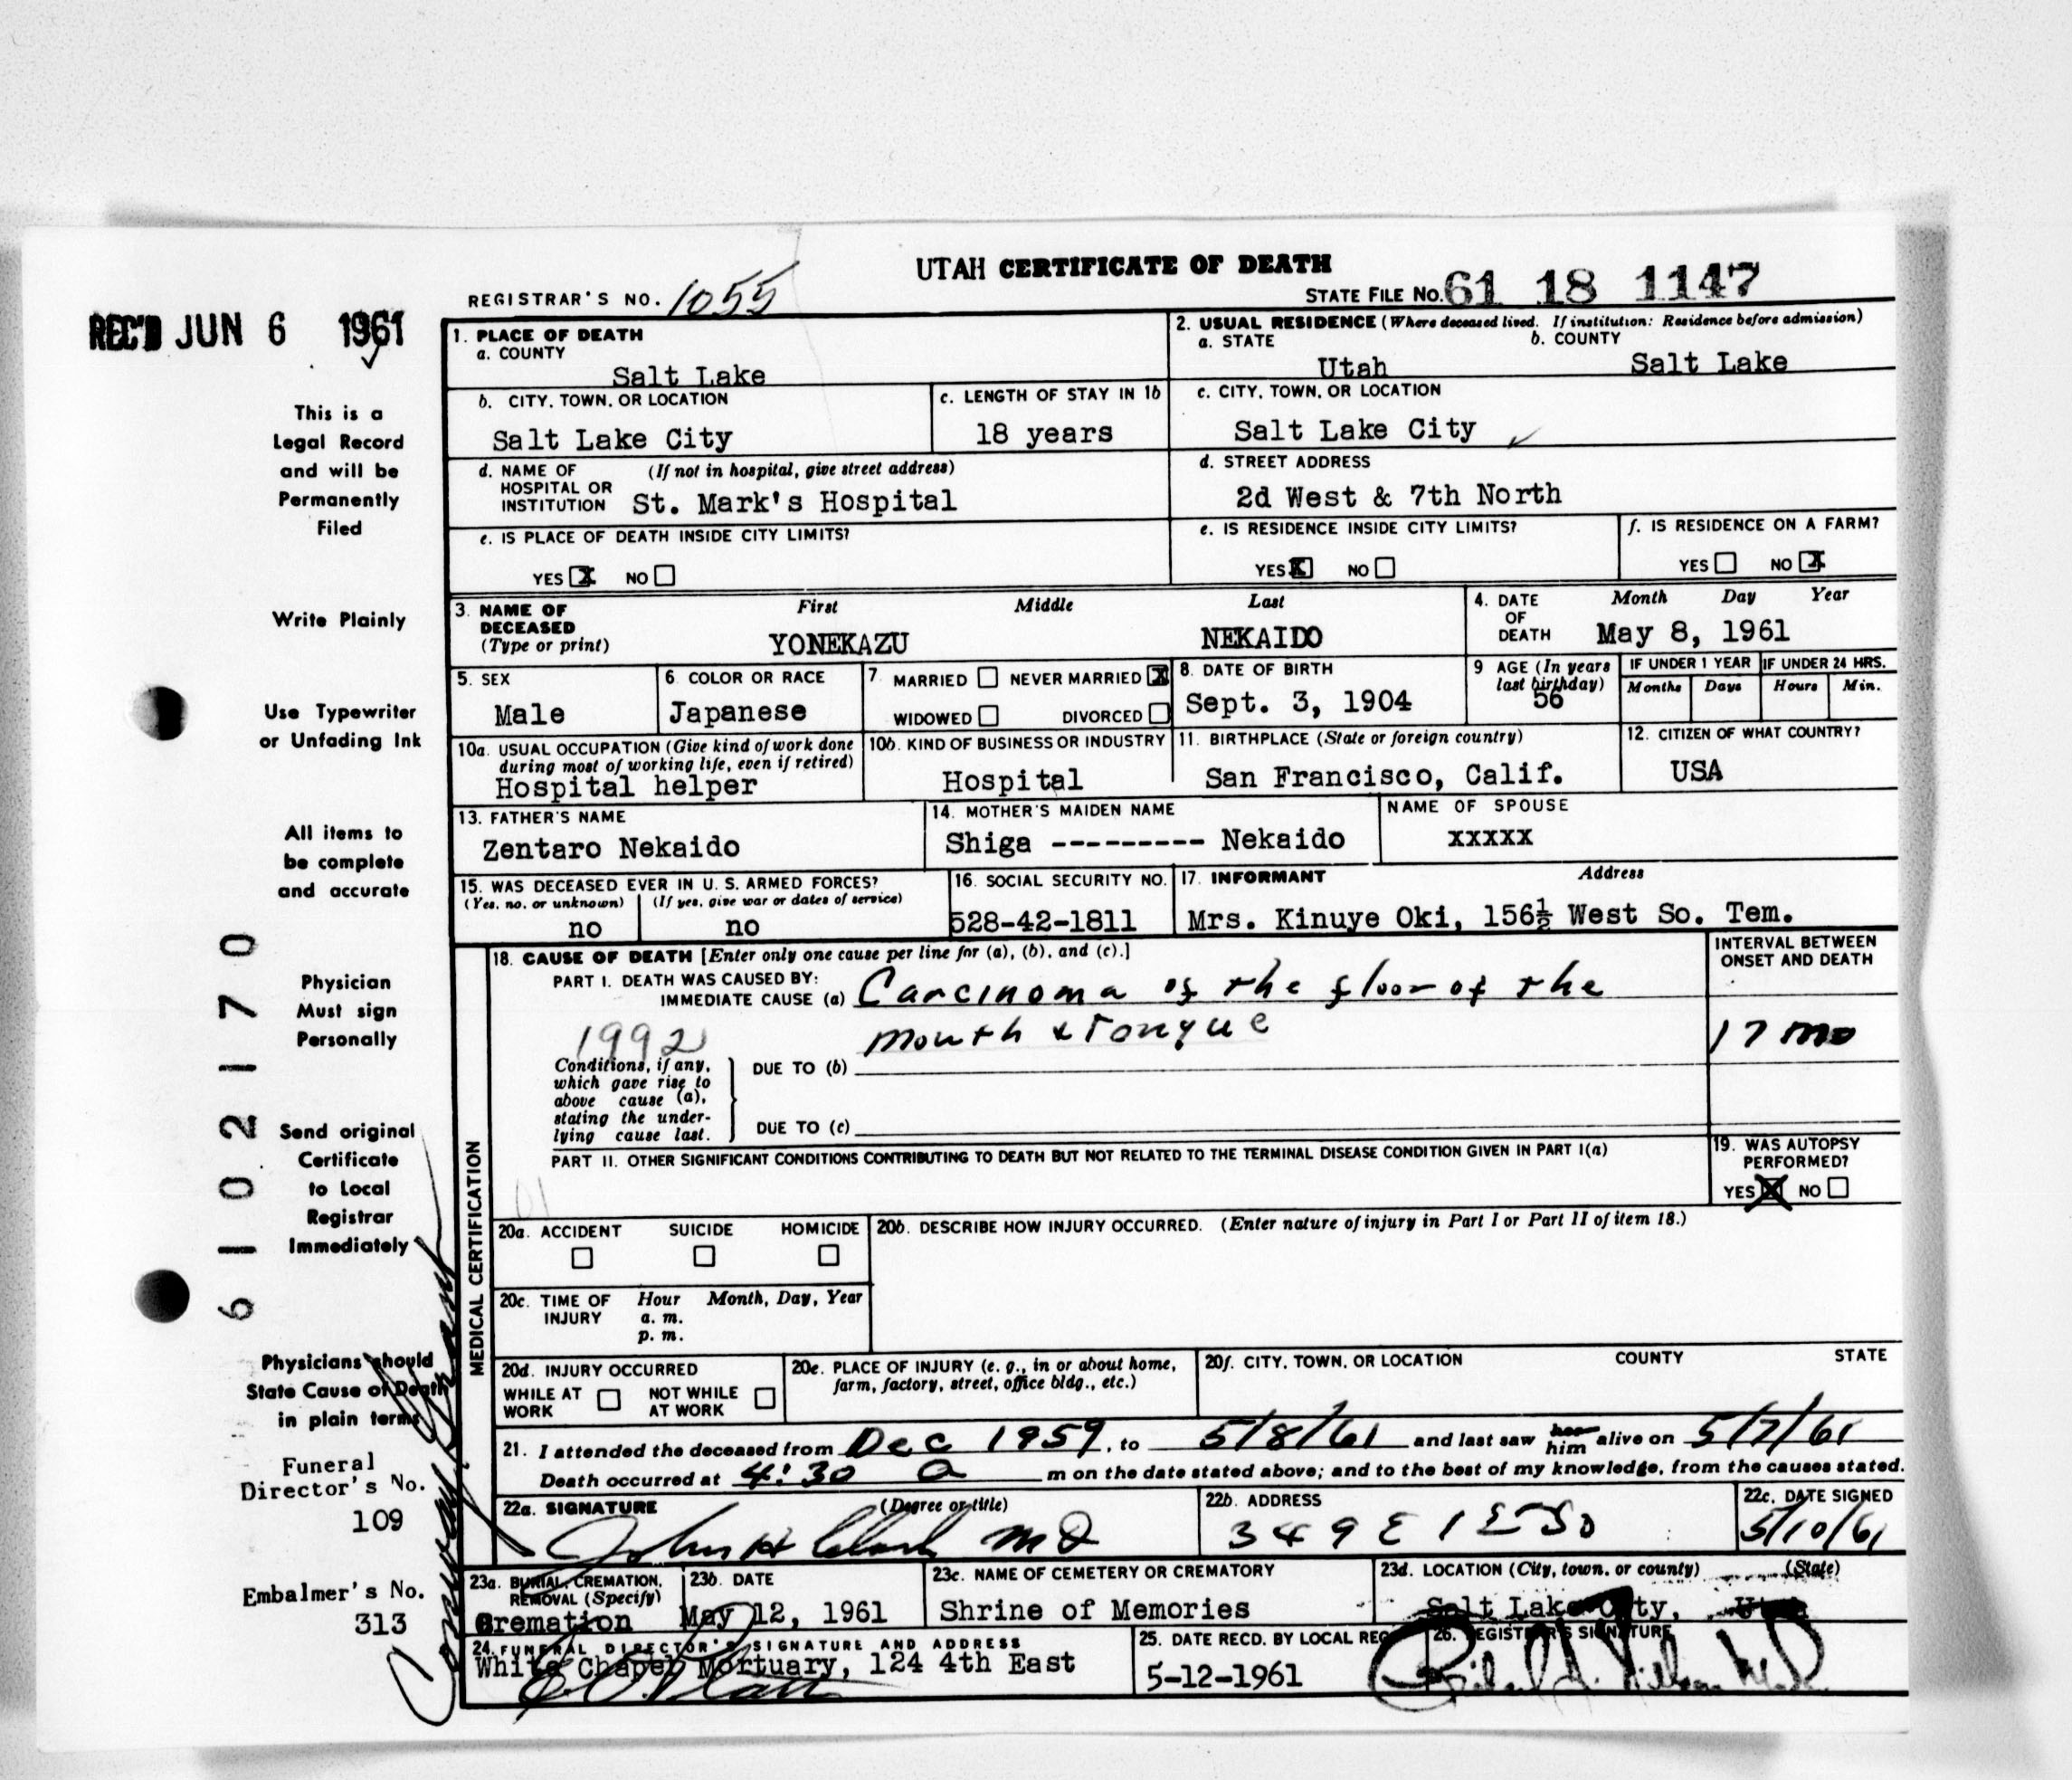 UTAH CERTIFICATE OF DEATH
REGISTRAR'S NO. 1055
STATE FILE No. 61 18 1147
REC'D JUN 6 1961
This is a
Legal Record
and will be
Permanently
Filed
Write Plainly
Use Typewriter
or Unfading Ink
All items to
be complete
and accurate
Physician
Must sign
Personally
Send original
Certificate
to Local
Registrar
Immediately
Physicians should
State Cause of Death
in plain terms
Funeral
Director's No.
109
Embalmer's No.
313
6 1 0 2 1 7 0
1. PLACE OF DEATH
a. COUNTY
Salt Lake
2. USUAL RESIDENCE (Where deceased lived. If institution: Residence before admission)
a. STATE
Utah
b. COUNTY
Salt Lake
b. CITY, TOWN, OR LOCATION
Salt Lake City
c. LENGTH OF STAY IN 1b
18 years
c. CITY, TOWN, OR LOCATION
Salt Lake City
d. NAME OF (If not in hospital, give street address)
HOSPITAL OR
INSTITUTION St. Mark's Hospital
d. STREET ADDRESS
2d West & 7th North
e. IS PLACE OF DEATH INSIDE CITY LIMITS?
YES X NO
e. IS RESIDENCE INSIDE CITY LIMITS?
YES X NO
f. IS RESIDENCE ON A FARM?
YES NO X
3. NAME OF DECEASED (Type or print)
First Middle Last
YONEKAZU NEKAIDO
4. DATE OF DEATH
Month Day Year
May 8, 1961
5. SEX
Male
6 COLOR OR RACE
Japanese
7. MARRIED NEVER MARRIED X
WIDOWED DIVORCED
8. DATE OF BIRTH
Sept. 3, 1904
9 AGE (In years
last birthday)
56
IF UNDER 1 YEAR
Months Days
IF UNDER 24 HRS.
Hours Min.
10a. USUAL OCCUPATION (Give kind of work done
during most of working life, even if retired)
Hospital helper
10b. KIND OF BUSINESS OR INDUSTRY
Hospital
11. BIRTHPLACE (State or foreign country)
San Francisco, Calif.
12. CITIZEN OF WHAT COUNTRY?
USA
13. FATHER'S NAME
Zentaro Nekaido
14. MOTHER'S MAIDEN NAME
Shiga --------- Nekaido
NAME OF SPOUSE
xxxxx
15. WAS DECEASED EVER IN U. S. ARMED FORCES?
(Yes, no, or unknown) (If yes, give war or dates of service)
no no
16. SOCIAL SECURITY NO.
528-42-1811
17. INFORMANT Address
Mrs. Kinuye Oki, 156½ West So. Tem.
MEDICAL CERTIFICATION
18. CAUSE OF DEATH [Enter only one cause per line for (a), (b), and (c).]
INTERVAL BETWEEN
ONSET AND DEATH
PART I. DEATH WAS CAUSED BY:
IMMEDIATE CAUSE (a) Carcinoma of the floor of the
mouth & Tongue
17 mo
1992
Conditions, if any,
which gave rise to
above cause (a),
stating the under-
lying cause last.
DUE TO (b)
DUE TO (c)
PART II. OTHER SIGNIFICANT CONDITIONS CONTRIBUTING TO DEATH BUT NOT RELATED TO THE TERMINAL DISEASE CONDITION GIVEN IN PART I(a)
01
19. WAS AUTOPSY
PERFORMED?
YES X NO
20a. ACCIDENT SUICIDE HOMICIDE
20b. DESCRIBE HOW INJURY OCCURRED. (Enter nature of injury in Part I or Part II of item 18.)
20c. TIME OF INJURY
Hour Month, Day, Year
a. m.
p. m.
20d. INJURY OCCURRED
WHILE AT WORK NOT WHILE AT WORK
20e. PLACE OF INJURY (e. g., in or about home,
farm, factory, street, office bldg., etc.)
20f. CITY, TOWN, OR LOCATION COUNTY STATE
21. I attended the deceased from Dec 1959, to 5/8/61 and last saw her him alive on 5/7/61
Death occurred at 4:30 a m on the date stated above; and to the best of my knowledge, from the causes stated.
22a. SIGNATURE (Degree or title)
John H Clark MD
22b. ADDRESS
349 E 1
22c. DATE SIGNED
5/10/61
23a. BURIAL, CREMATION,
REMOVAL (Specify)
Cremation
23b. DATE
May 12, 1961
23c. NAME OF CEMETERY OR CREMATORY
Shrine of Memories
23d. LOCATION (City, town, or county) (State)
Salt Lake City, Utah
24. FUNERAL DIRECTOR'S SIGNATURE AND ADDRESS
White Chapel Mortuary, 124 4th East
25. DATE RECD. BY LOCAL REG.
5-12-1961
26. REGISTRAR'S SIGNATURE